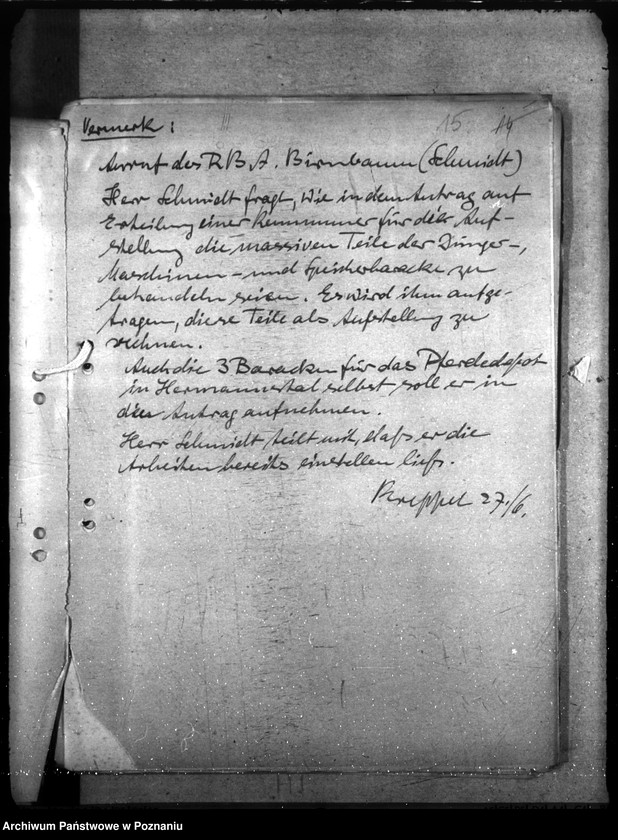 15. 14
Vermerk:
Anruf des R.B.A. Birnbaum (Schmidt)
Herr Schmidt fragt, wie in dem Antrag auf
Erteilung einer Kennummer für die Auf-
stellung die massiven Teile der Dünger-,
Maschinen- und Speicherbaracke zu
behandeln seien. Es wird ihm aufge-
tragen, diese Teile als Aufstellung zu
rechnen.
Auch die 3 Baracken für das Pferdedepot
in Hermannstal selbst soll er in
den Antrag aufnehmen.
Herr Schmidt teilt mit, daß er die
Arbeiten bereits einstellen ließ.
27./6.
Archiwum Państwowe w Poznaniu